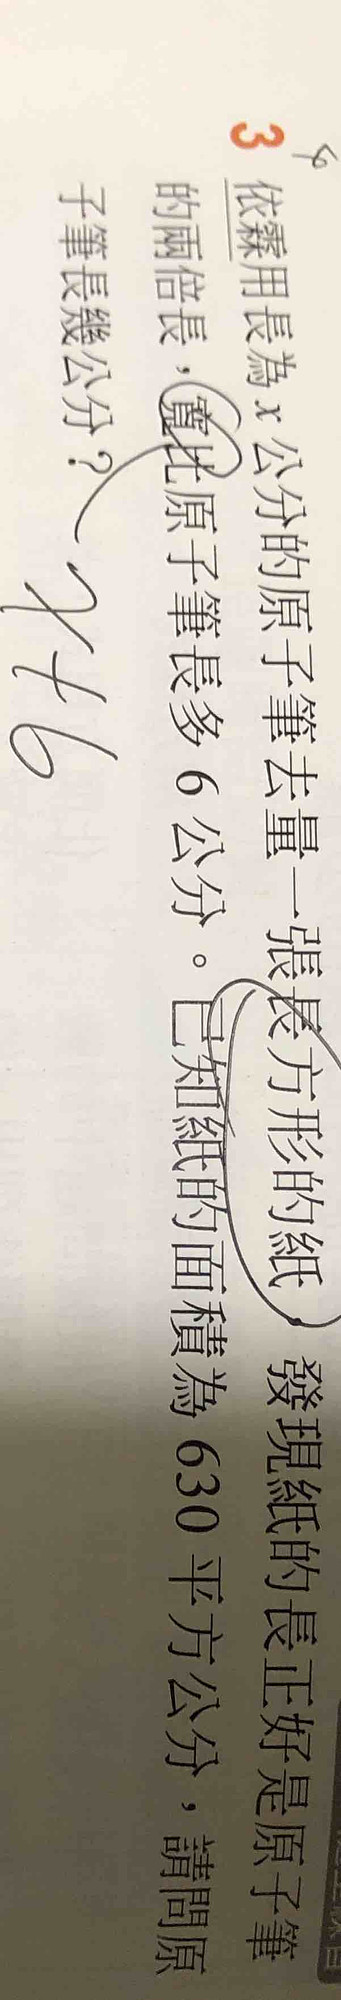 3 依霖用長為 x 公分的原子筆去量一張長方形的紙，發現紙的長正好是原子筆
的兩倍長，寬比原子筆長多 6 公分。已知紙的面積為 630 平方公分，請問原
子筆長幾公分？
x+6